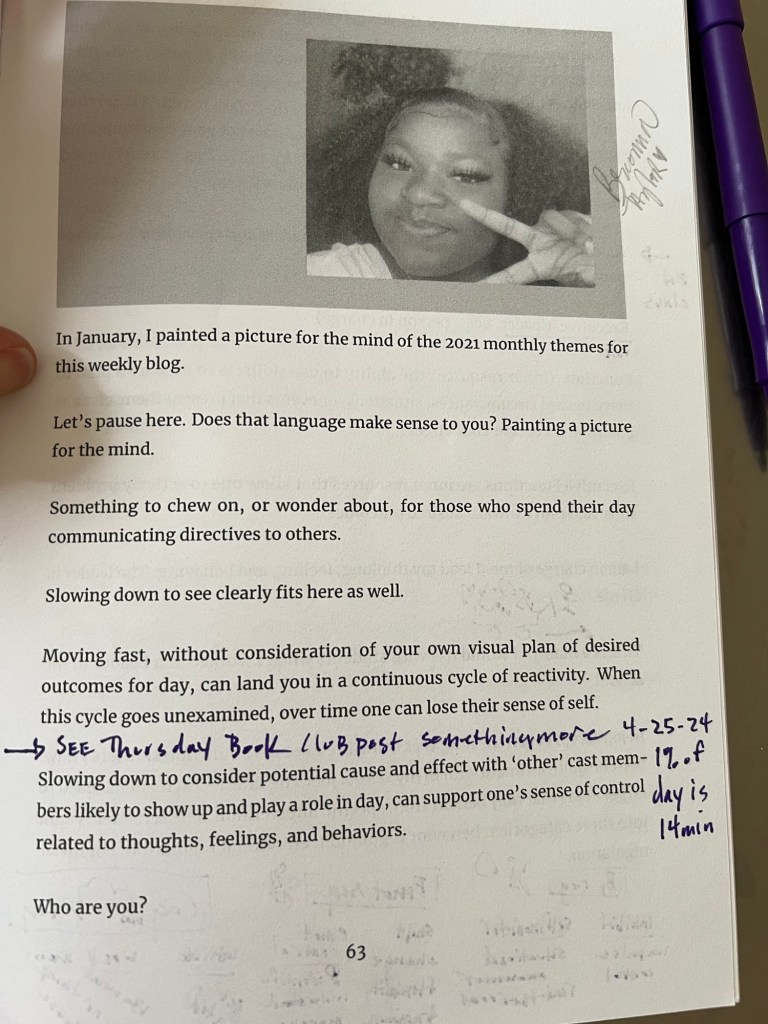 In January, I painted a picture for the mind of the 2021 monthly themes for
this weekly blog.
Let's pause here. Does that language make sense to you? Painting a picture
for the mind.
Something to chew on, or wonder about, for those who spend their day
communicating directives to others.
Slowing down to see clearly fits here as well.
Moving fast, without consideration of your own visual plan of desired
outcomes for day, can land you in a continuous cycle of reactivity. When
this cycle goes unexamined, over time one can lose their sense of self.
→ SEE Thursday Book Club post somethingmore 4-25-24
Slowing down to consider potential cause and effect with 'other' cast mem-
bers likely to show up and play a role in day, can support one's sense of control
related to thoughts, feelings, and behaviors.
1% of
day is
14min
Who are you?
63